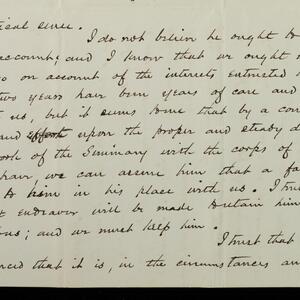 ical sense.
I do not believe he ought to
account; and I know that we ought n
so on account of the interests entrusted
two years have been years of care and
us, but it seems to me that by a con
and upon the proper and steady d
work of the Seminary with the corps of
have, we can assure him that a fa
to him in his place with us. I trus
endeavor will be made to retain him
ous; and we must keep him.
I trust that
nced that it is, in the circumstances an